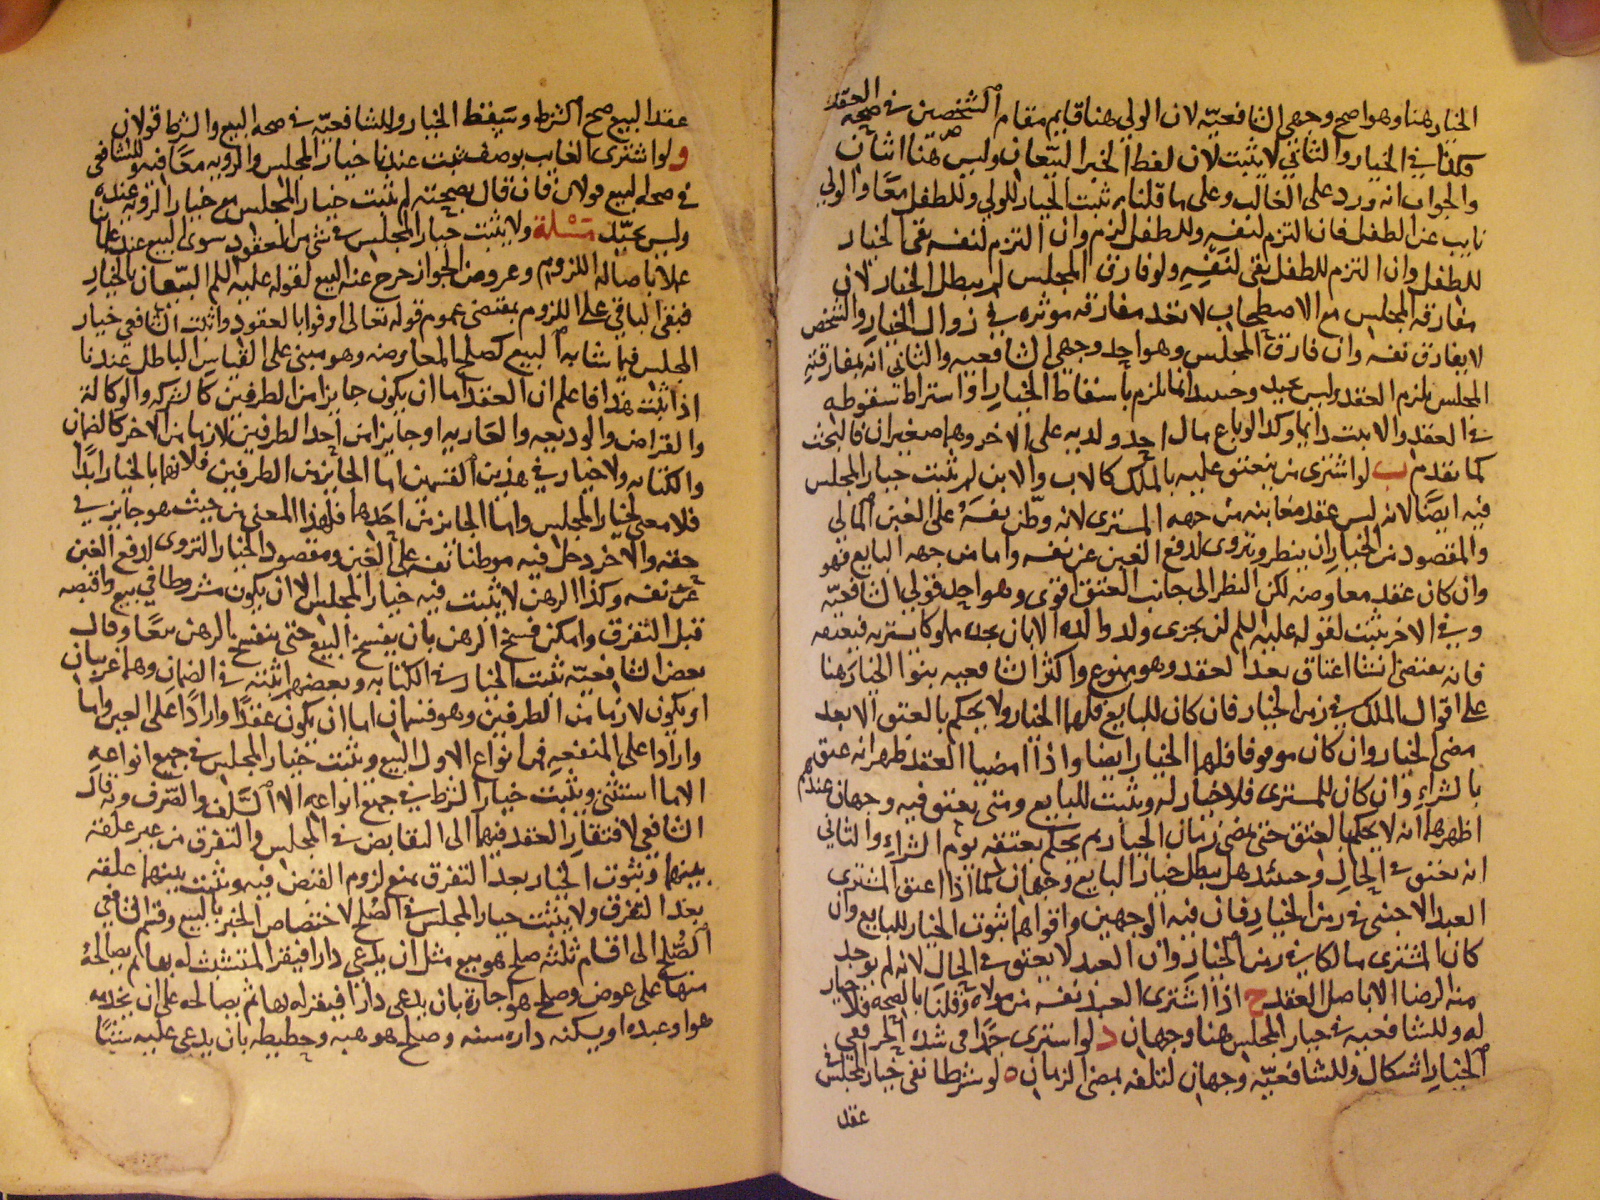 الخيار هنا وهو اصح وجهي الشافعيّة لان الولي هنا قايم مقام الشخصين في صحه العقد
فكذا في الخيار والثاني لا يثبت لان لفظ الخبر البيّعان وليس هنا اثنان
والجواب انه ورد على الغالب وعلى ما قلناه يثبت الخيار للولي وللطفل معًا والولي
نايب عن الطفل فان التزم لنفسه وللطفل لزم وان التزم لنفسه بقى الخيار
للطفل وان التزم للطفل بقى لنفسه ولو فارق المجلس لم يبطل الخيار لان
مفارقه المجلس مع الاصطحاب لا تعد مفارقه موثره في زوال الخيار والشخص
لا يفارق نفسه وان فارق المجلس وهو احد وجهي الشافعيه والثاني انه بمفارقته
المجلس يلزم العقد وليس بجيد وحينيذ انما يلزم باسقاط الخيار او اشتراط سقوطه
في العقد والا يثبت دايما وكذا لو باع مال احد ولديه على الاخر وهما صغيران فالبحث
كما تقدم ب لو اشترى من ينعتق عليه بالملك كالاب والابن لم يثبت خيار المجلس
فيه ايضًا لانه ليس عقد مغابنه من جهه المشترى لانه وطّن نفسَهُ على الغبن المالي
والمقصود من الخيار ان ينظر ويتروى لدفع الغبن عن نفسه واما من جهه البايع فهو
وان كان عقد معاوضه لكن النظر الى جانب العتق اقوى وهو احد قولي الشافعيّه
وفي الاخر يثبت لقوله عليه السلم لن يجزى ولد والده الا بان يجده مملوكا يشتريه فيعتقه
فانه يقتضى انشا اعتاق بعد العقد وهو ممنوع واكثر الشافعيه بنوا الخيار هنا
على اقوال الملك في زمن الخيار فان كان للبايع فلهما الخيار ولا يحكم بالعتق الا بعد
مضى الخيار وان كان موقوفا فلهما الخيار ايضا واذا امضيا العقد ظهر انه عتق
بالشراء وان كان للمشترى فلا خيار له ويثبت للبايع ومتى يعتق فيه وجهان عندهم
اظهرهما انه لا يحكم بالعتق حتى يمضى زمان الخيار ثم يحكم بعتقه يوم الشراء والثاني
انه يعتق في الحال وحينئذ هل يبطل خيار البايع وجهان كما اذا اعتق المشترى
العبد الاجنبى في زمن الخيار فان فيه الوجهين واقواهما ثبوت الخيار للبايع وان
كان المشترى مالكا في زمن الخيار وان العبد لا يعتق في الحال لانه لم يوجد
منه الرضا الا باصل العقد ج اذا اشترى العبد نفسه من مولاه وقلنا بالصحه فلا خيار
له وللشافعيه في خيار المجلس هنا وجهان د لو اشترى جَمدًا في شده الحر ففى
الخيار اشكال وللشافعيّه وجهان لتلفه بمضى الزمان ه لو شرطا نفى خيار المجلس
عقد
عقد البيع صح الشرط وسَقط الخيار وللشافعيّه في صحه البيع والشرط قولان
و لو اشترى الغايب بوصف ثبت عندنا خيار المجلس والرويه معًا فيه وللشافعي
في صحه البيع قولان فان قال بصحته لم يثبت خيار المجلس مع خيار الرويه عنده
وليس بجيّد مَسْئلة ولا يثبت خيار المجلس في شئ من العقود سوى البيع عند علمائنا
عملا باصاله اللزوم وعروض الجواز خرج عنه البيع لقوله عليه السلم البيّعان بالخيار
فبقى الباقي على اللزوم بمقتضى عموم قوله تعالى اوفوا بالعقود واثبت الشافعي خيار
المجلس فيما شابه البيع كصلح المعاوضه وهو مبنى على القياس الباطل عندنا
اذا ثبت هذا فاعلم ان العقد اما ان يكون جايزا من الطرفين كالشركه والوكالة
والقراض والوديعه والعاريه او جايزا من احد الطرفين لازما من الاخر كالضمان
والكتابه ولا خيار في هذين القسمين اما الجايز من الطرفين فلانهما بالخيار ابدًا
فلا معنى لخيار المجلس واما الجايز من احدهما فلهذا المعنى من حيث هو جايز في
حقه والاخر دخل فيه موطنا نفسه على الغبن ومقصود الخيار التروى لدفع الغبن
عن نفسه وكذا الرهن لا يثبت فيه خيار المجلس الا ان يكون مشروطا في بيع واقبضه
قبل التفرق وامكن فسخ الرهن بان يفسخ البيع حتى ينفسخ الرهن تبعًا وقال
بعض الشافعيّه يثبت الخيار في الكتابه وبعضهم اثبته في الضمان وهما غريبان
او يكون لازما من الطرفين وهو قسمان اما ان يكون عقدًا واردًا على العين واما
واردا على المنفعه فمن انواع الاول البيع ويثبت خيار المجلس في جميع انواعه
الا ما استثنى ويثبت خيار الشرط في جميع انواعه الا السَّلف والصّرف وبه قال
الشافعي لافتقار العقد فيهما الى التقابض في المجلس والتفرق من غير علقة
بينهما وثبوت الخيار بعد التفرق يمنع لزوم القبض فيه ويثبت بينهما علقه
بعد التفرق ولا يثبت خيار المجلس في الصّلح لاختصاص الخبر بالبيع وقسّم الشافعي
الصُّلح الى اقسام ثلثه صلح هو بيع مثل ان يدعى دارا فيقر المتشبث له بها ثم يصالحهُ
منها على عوض وصلح هو اجارة بان يدعى دارًا فيقر له بها ثم يصالحه على ان يخدمه
هو او عبده او يسكنه داره سنه وصلح هو هبه وحطيطه بان يدعى عليه شيئًا